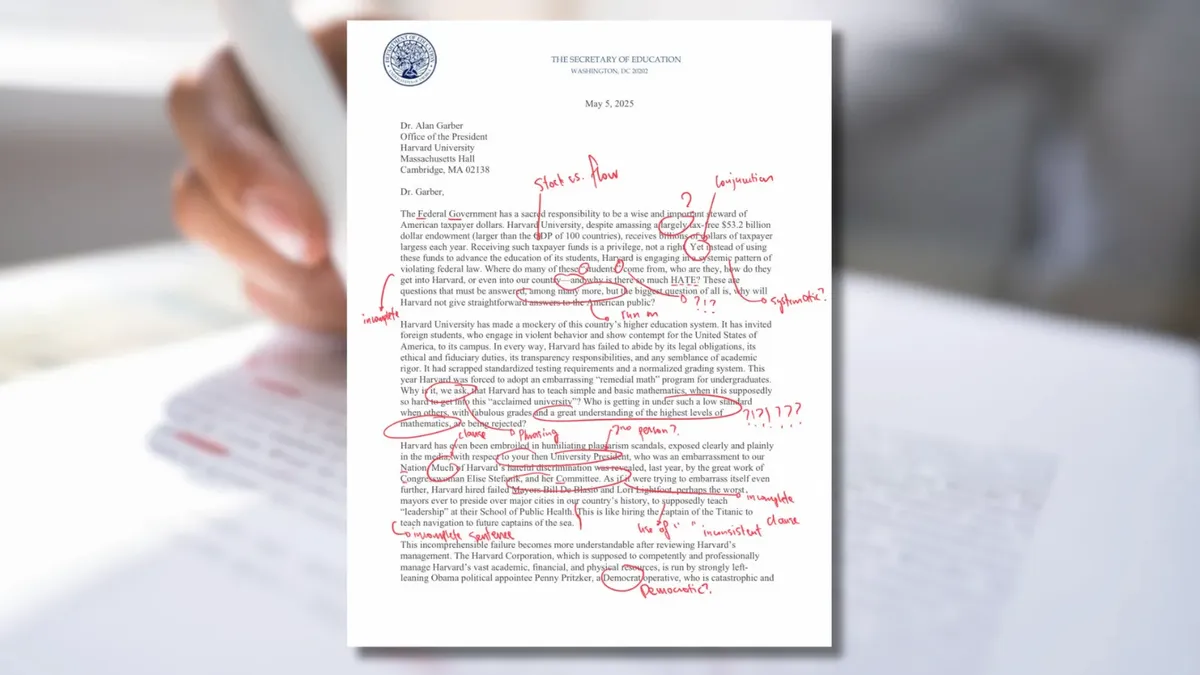 THE SECRETARY OF EDUCATION
WASHINGTON, DC 20202
May 5, 2025
Dr. Alan Garber
Office of the President
Harvard University
Massachusetts Hall
Cambridge, MA 02138
Stock vs. flow
Conjunction
Dr. Garber,
?
The Federal Government has a sacred responsibility to be a wise and important steward of
American taxpayer dollars. Harvard University, despite amassing a largely tax-free $53.2 billion
dollar endowment (larger than the GDP of 100 countries), receives billions of dollars of taxpayer
largess each year. Receiving such taxpayer funds is a privilege, not a right. Yet instead of using
these funds to advance the education of its students, Harvard is engaging in a systemic pattern of
violating federal law. Where do many of these students come from, who are they, how do they
get into Harvard, or even into our country—and why is there so much HATE? These are
questions that must be answered, among many more, but the biggest question of all is, why will
Harvard not give straightforward answers to the American public?
systematic?
?!?
incomplete
run on
Harvard University has made a mockery of this country's higher education system. It has invited
foreign students, who engage in violent behavior and show contempt for the United States of
America, to its campus. In every way, Harvard has failed to abide by its legal obligations, its
ethical and fiduciary duties, its transparency responsibilities, and any semblance of academic
rigor. It had scrapped standardized testing requirements and a normalized grading system. This
year Harvard was forced to adopt an embarrassing "remedial math" program for undergraduates.
Why is it, we ask, that Harvard has to teach simple and basic mathematics, when it is supposedly
so hard to get into this "acclaimed university"? Who is getting in under such a low standard
when others, with fabulous grades and a great understanding of the highest levels of
mathematics, are being rejected?
?!?!???
clause
Phrasing
no person?
Harvard has even been embroiled in humiliating plagiarism scandals, exposed clearly and plainly
in the media, with respect to your then University President, who was an embarrassment to our
Nation. Much of Harvard's hateful discrimination was revealed, last year, by the great work of
Congresswoman Elise Stefanik, and her Committee. As if it were trying to embarrass itself even
further, Harvard hired failed Mayors Bill De Blasio and Lori Lightfoot, perhaps the worst
mayors ever to preside over major cities in our country's history, to supposedly teach
"leadership" at their School of Public Health. This is like hiring the captain of the Titanic to
teach navigation to future captains of the sea.
incomplete
clause
use of " " inconsistent
incomplete sentence
This incomprehensible failure becomes more understandable after reviewing Harvard's
management. The Harvard Corporation, which is supposed to competently and professionally
manage Harvard's vast academic, financial, and physical resources, is run by strongly left-
leaning Obama political appointee Penny Pritzker, a Democrat operative, who is catastrophic and
Democratic?